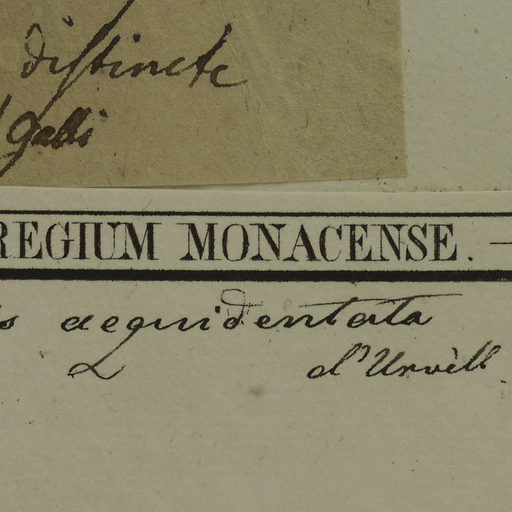 distincte
Galli
REGIUM MONACENSE. —
s aequidentata
d'Urvill